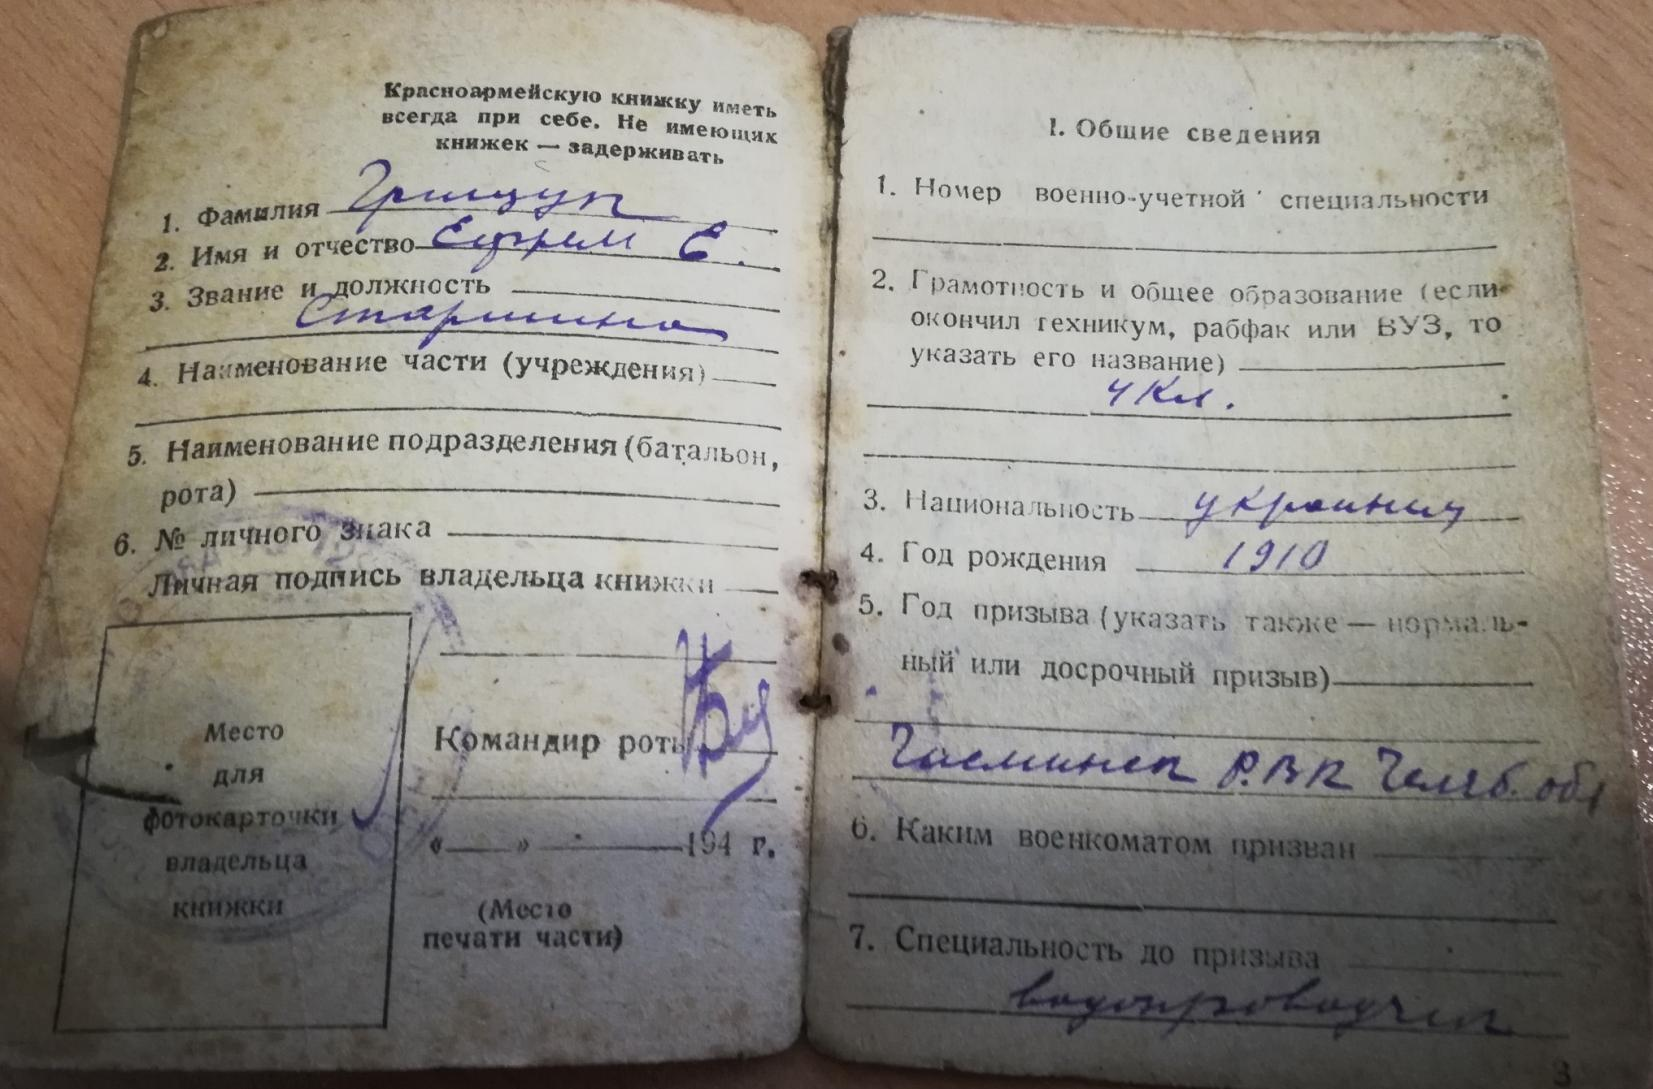 Красноармейскую книжку иметь
всегда при себе. Не имеющих
книжек — задерживать
1. Фамилия Грищук
2. Имя и отчество Ефрем Е.
3. Звание и должность
Старшина
4. Наименование части (учреждения)
5. Наименование подразделения (батальон,
рота)
6. № личного знака
Личная подпись владельца книжки
Место
для
фотокарточки
владельца
книжки
Командир роты
« » 194 г.
(Место
печати части)
I. Общие сведения
1. Номер военно-учетной специальности
2. Грамотность и общее образование (если
окончил техникум, рабфак или ВУЗ, то
указать его название)
4 Кл.
3. Национальность украинец
4. Год рождения 1910
5. Год призыва (указать также — нормаль-
ный или досрочный призыв)
Р.В.К Челяб. обл
6. Каким военкоматом призван
7. Специальность до призыва
водопроводчик
3